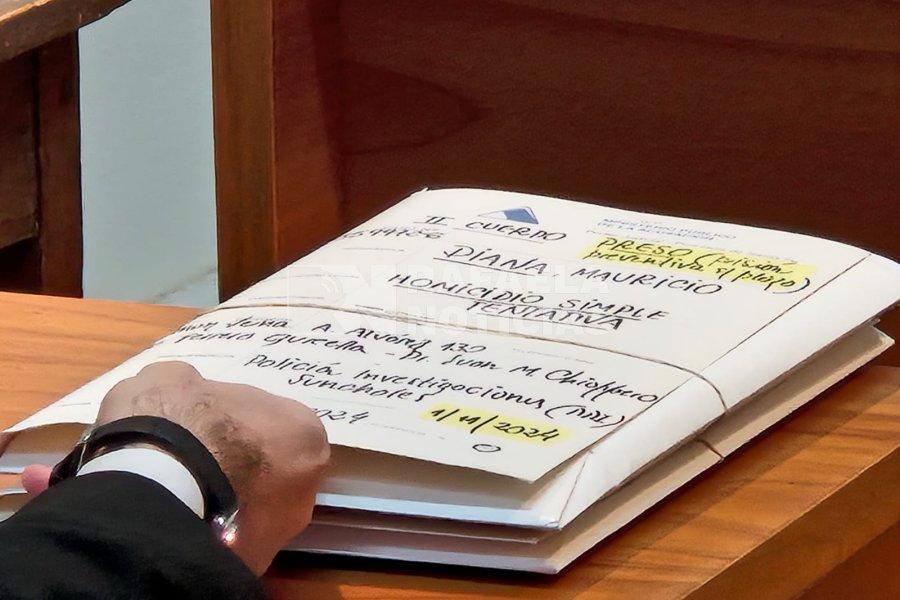 II CUERPO
MINISTERIO PÚBLICO
DE LA ACUSACIÓN
PRESO (prision
preventiva s/plazo)
DIANA MAURICIO
HOMICIDIO SIMPLE
TENTATIVA
RAFAELA
NOTICIAS
A Alvarez 132
Dr. Juan M. Chiappero
Policia Investigaciones (PDI)
Sunchales
2024
1/11/2024